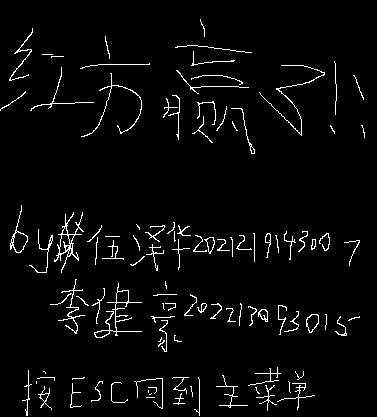 红方赢了!!
by伍泽华2021219143007
李健豪202213093015
按ESC回到主菜单